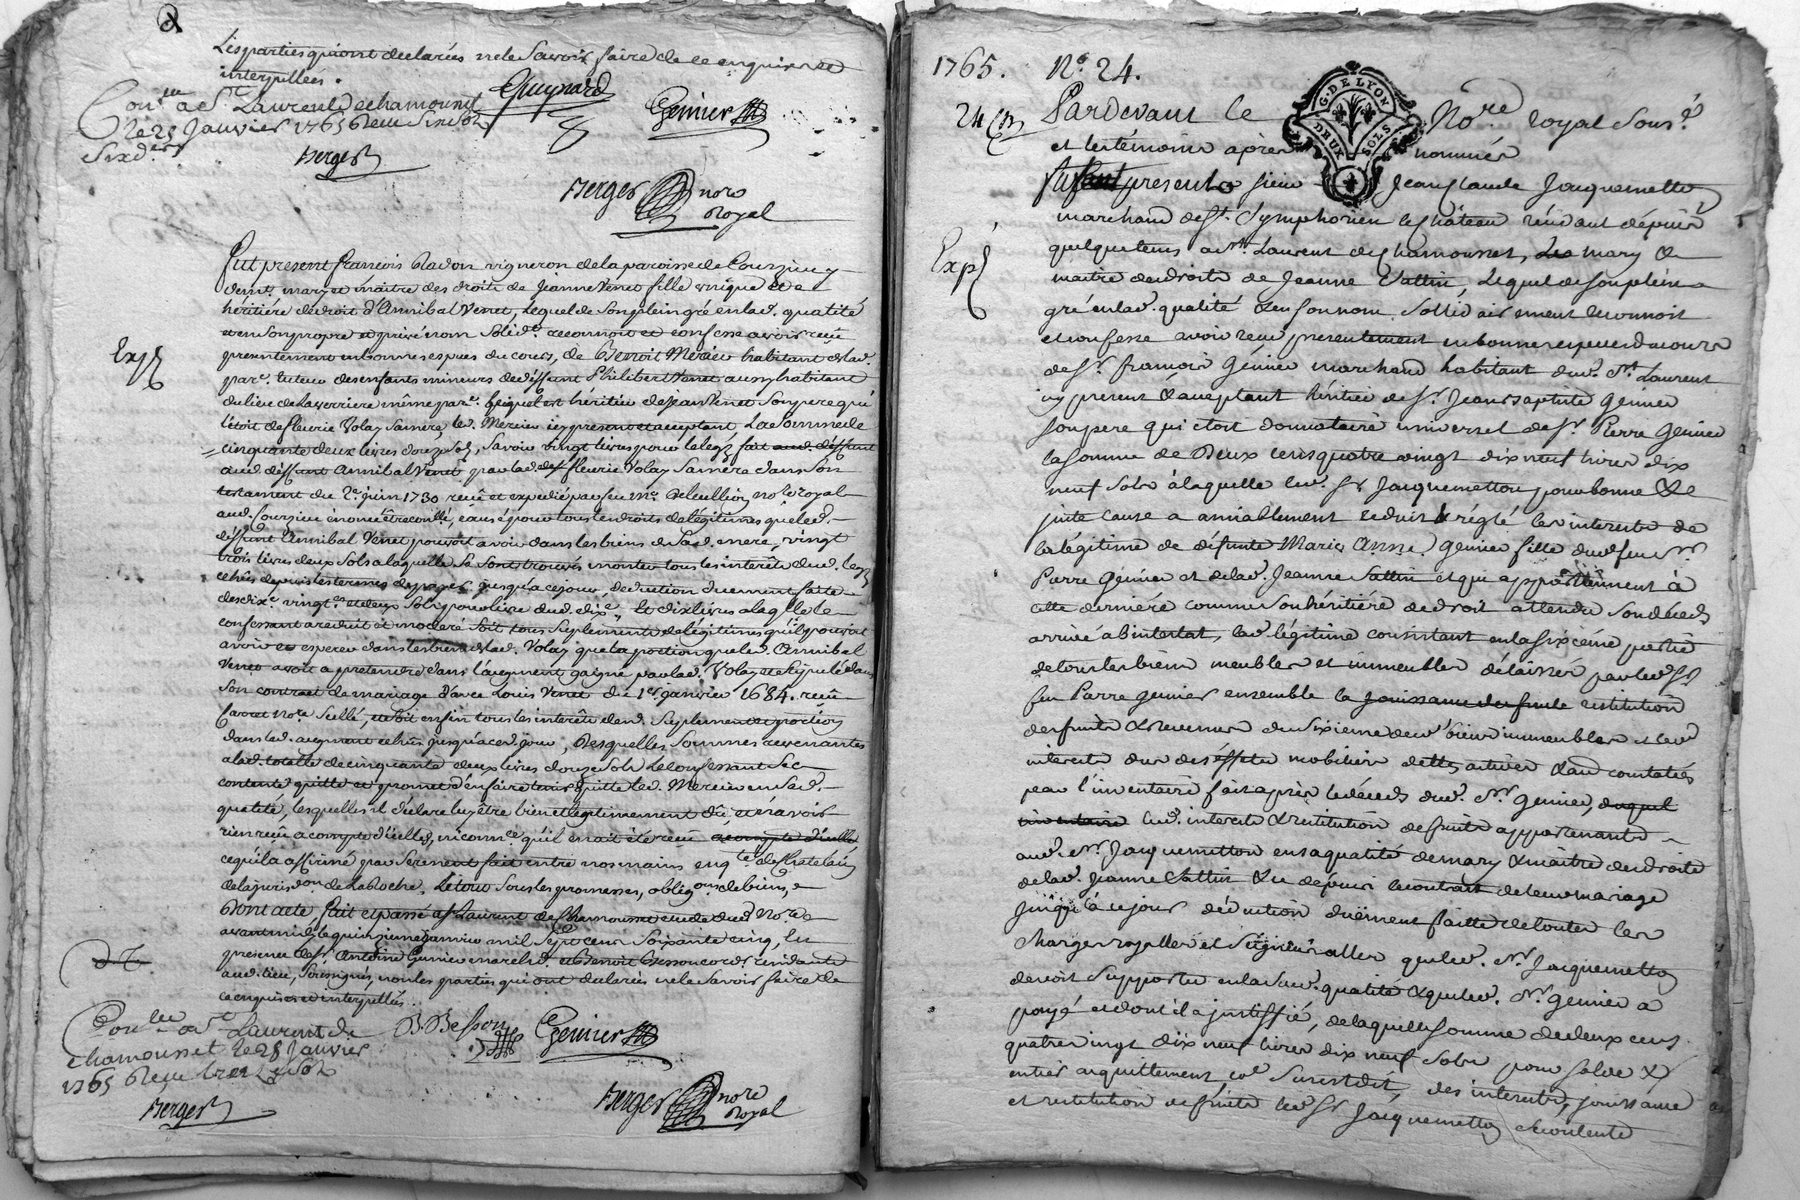 Les parties qui ont declarés ne le Savoir faire de ce enquises et
interpellees.
Con.lée a St Laurent de chamousset
le 25 Janvier 1765 Reçu Six sols
Six d.ers
Guynard
Genier
Berger
Berger nore
Royal
Exp
Fut present François Radon vigneron de la paroisse de Courzieu
demt, mary et maitre des droits de Jeanne Venet fille unique et
héritiere de droit d'Annibal Venet, lequel de Son plein gré en lad. qualité
et en Son propre et privé nom Solid.t reconnoit et confesse avoir reçû
presentement en bonnes especes du cours, de Benoit Mercier habitant de lad.
par.e tuteur des enfants mineurs de deffunt Philibert Venet aussy habitant
du lieu de Laverriere même par.e lequel est héritier de Jean Venet Son pere qui
l'étoit de fleurie Volay Sa mere, led. Mercier icy present et acceptant La Somme de
cinquante deux livres douze Sols, Savoir vingt livres pour le legs fait aud. deffunt
aud. deffunt Annibal Venet par lad. fleurie Volay Sa mere dans Son
testament du 2e juin 1730 reçû et expedié par feu Me Deleullion nore royal
aud. Courzieu controllé, causé pour tous les droits de légitimes que led.
deffunt Annibal Venet pouvoit avoir dans les biens de Sad. mere, vingt
trois livres deux Sols a laquelle Se Sont trouvés monter tous les interêts dud. legs
echûs depuis les termes de payer jusqu'a ce jour deduction duement faite
des dix.e vingt.es et deux Sols pour livre dud. dix.e, Et dix livres a laq.lle le
confessant a reduit et moderé Soit tous Suplements de légitimes qu'il pouvoit
avoir et esperer dans les biens de lad. Volay que la portion que led. Annibal
Venet avoit a pretendre dans l'augment gaigné par lad. Volay et Stipulé dans
Son contract de mariage d'avec Louis Venet du 1er janvier 1684. reçu
nore Scellé, et Soit enfin tous les interêts dud. Suplement et portion
dans led. augment echûs jusqu'a ced. jour, Desquelles Sommes revenantes
a lad. totalle de cinquante deux livres douze Sols Le confessant Se
contente quitte et promet d'en faire tenir quitte led. Mercier en Sad.
qualité, lesquelles il declare luy être bien et legitimement dû, et n'avoir
rien reçû a compte d'icelles, ni connce qu'il en ait été reçu a compte d'icelles
ce qu'il a affirmé par Serment fait entre nos mains en q.té de Chatelain
de la juris.don de La Roche. Le tout Sous les promesses, oblig.ons de biens, &
Dont acte, fait et passé a St Laurent de Chamousset etude dud. Nore
avant midy le quinzieme janvier mil Sept cens Soixante cinq, En
presence de Sr Antoine Genier march.d et Benoit Besson cord.r residants
aud. lieu, Soussignés, non les parties qui ont declarés ne le Savoir faire de
ce enquises et interpellés.
Con.lée a St Laurent de
chamousset le 28 Janvier
1765 Reçu treize Sols
B Besson
Genier
Berger
Berger nore
Royal
1765. No. 24.
G. DE LYON
DEUX SOLS
Pardevant le Nore royal Sous.é
et les témoins après nommés
Exp
fut present Sieur Jean Claude Jacquemetton
marchand de St. Symphorien le Château residant depuis
quelque tems a St Laurent de Chamousset, mary &
maitre des droits de Jeanne Vattin, Lequel de Son plein
gré en lad. qualité & en Son nom Sollidairement reconnoit
et confesse avoir reçu presentement en bonnes especes du cours
de Sr. François Génier marchand habitant dud. St. Laurent
icy present & acceptant héritier de Sr. Jean Baptiste Genier
Son pere qui étoit donnataire universel de Sr. Pierre Genier
la somme de Deux cens quatre vingt dix neuf livres dix
neuf Sols à laquelle led. Sr Jacquemetton pour bonne &
juste cause a amiablement reduit & réglé les interets de
la légitime de défunte Marie Anne Genier fille dud. feu Sr.
Pierre Génier et de lad. Jeanne Vattin et qui appartiennent à
cette derniére comme Son héritiére de droit attendu Son décés
arrivé ab intestat, lad. légitime consistant en la sixiéme partie
de tous les biens meubles et immeubles délaissés par led. Sr
feu Pierre Genier ensemble la jouissance des fruits restitution
des fruits & revenus du Sixieme des d. biens immeubles et les
interets dus des éffets mobiliers dettes actives & constatés
par l'inventaire fait après le décés dud. Sr. Genier, duquel
inventaire led. interets & restitution de fruits appartenants
aud. Sr. Jacquemetton en sa qualité de mary & maitre des droits
de lad. Jeanne Vattin & depuis le contrat de leur mariage
jusqu'à ce jour déduction duëment faitte de toutes les
charges royalles et Seigneurialles que led. Sr. Jacquemetton
devoit Supporter en lad. qualité & que led. Sr. Genier a
payé et dont il a justiffié, de laquelle somme de deux cens
quatre vingt dix neuf livres dix neuf Sols pour Solde &
entier acquittement Susd. des interets, jouissance
et restitution de fruits led. Sr Jacquemetton Se contente